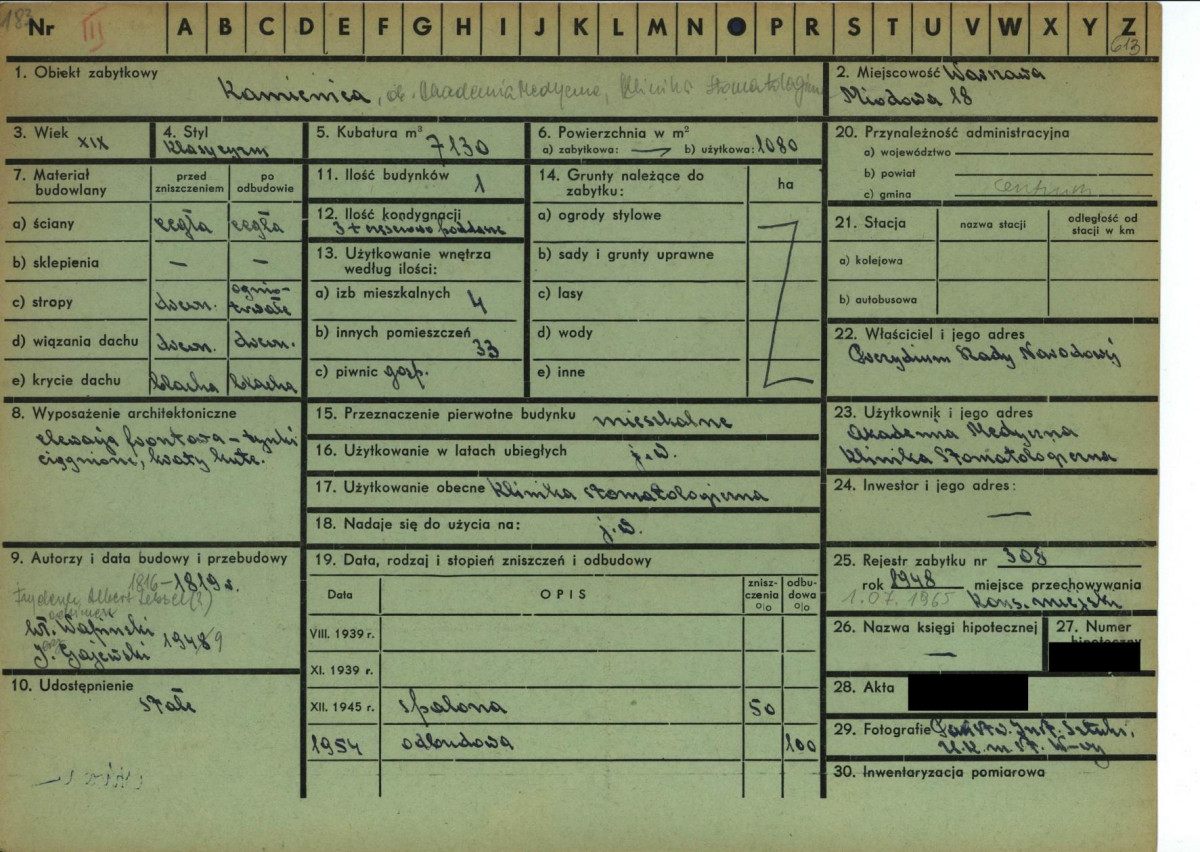 183
Nr III A B C D E F G H I J K L M N O P R S T U V W X Y Z
613
1. Obiekt zabytkowy
Kamienica, ob. Akademia Medyczna, Klinika Stomatologiczna
2. Miejscowość Warszawa
Miodowa 18
3. Wiek
XIX
4. Styl
klasycyzm
5. Kubatura m³
7130
6. Powierzchnia w m²
a) zabytkowa: — b) użytkowa: 1080
7. Materiał budowlany
przed zniszczeniem
po odbudowie
a) ściany cegła cegła
b) sklepienia — —
c) stropy drewn. ognio-
trwałe
d) wiązania dachu drewn. drewn.
e) krycie dachu blacha blacha
8. Wyposażenie architektoniczne
elewacja frontowa – tynki
ciągnione, kraty kute.
9. Autorzy i data budowy i przebudowy
1816–1819 r.
Fryderyk Albert Lessel (?)
Wł. Wapiński
J. Gajewski 1948/9
10. Udostępnienie
stałe
11. Ilość budynków
1
12. Ilość kondygnacji
3 + częściowo poddasze
13. Użytkowanie wnętrza
według ilości:
a) izb mieszkalnych 4
b) innych pomieszczeń
33
c) piwnic gosp.
14. Grunty należące do
zabytku:
ha
a) ogrody stylowe
b) sady i grunty uprawne
c) lasy
d) wody
e) inne
15. Przeznaczenie pierwotne budynku mieszkalne
16. Użytkowanie w latach ubiegłych j.w.
17. Użytkowanie obecne Klinika Stomatologiczna
18. Nadaje się do użycia na: j.w.
19. Data, rodzaj i stopień zniszczeń i odbudowy
Data OPIS znisz-
czenia
0/0 odbu-
dowa
0/0
VIII. 1939 r.
XI. 1939 r.
XII. 1945 r. spalona 50
1954 odbudowa 100
20. Przynależność administracyjna
a) województwo
b) powiat
c) gmina centrum
21. Stacja nazwa stacji odległość od
stacji w km
a) kolejowa
b) autobusowa
22. Właściciel i jego adres
Prezydium Rady Narodowej
23. Użytkownik i jego adres
Akademia Medyczna
Klinika Stomatologiczna
24. Inwestor i jego adres:
—
25. Rejestr zabytku nr 308
rok 1948 miejsce przechowywania
1.07.1965 Kons. miejski
26. Nazwa księgi hipotecznej
—
27. Numer
hipoteczny
28. Akta
29. Fotografie Państw. Inst. Sztuki,
U.K. m. st. W-wy
30. Inwentaryzacja pomiarowa